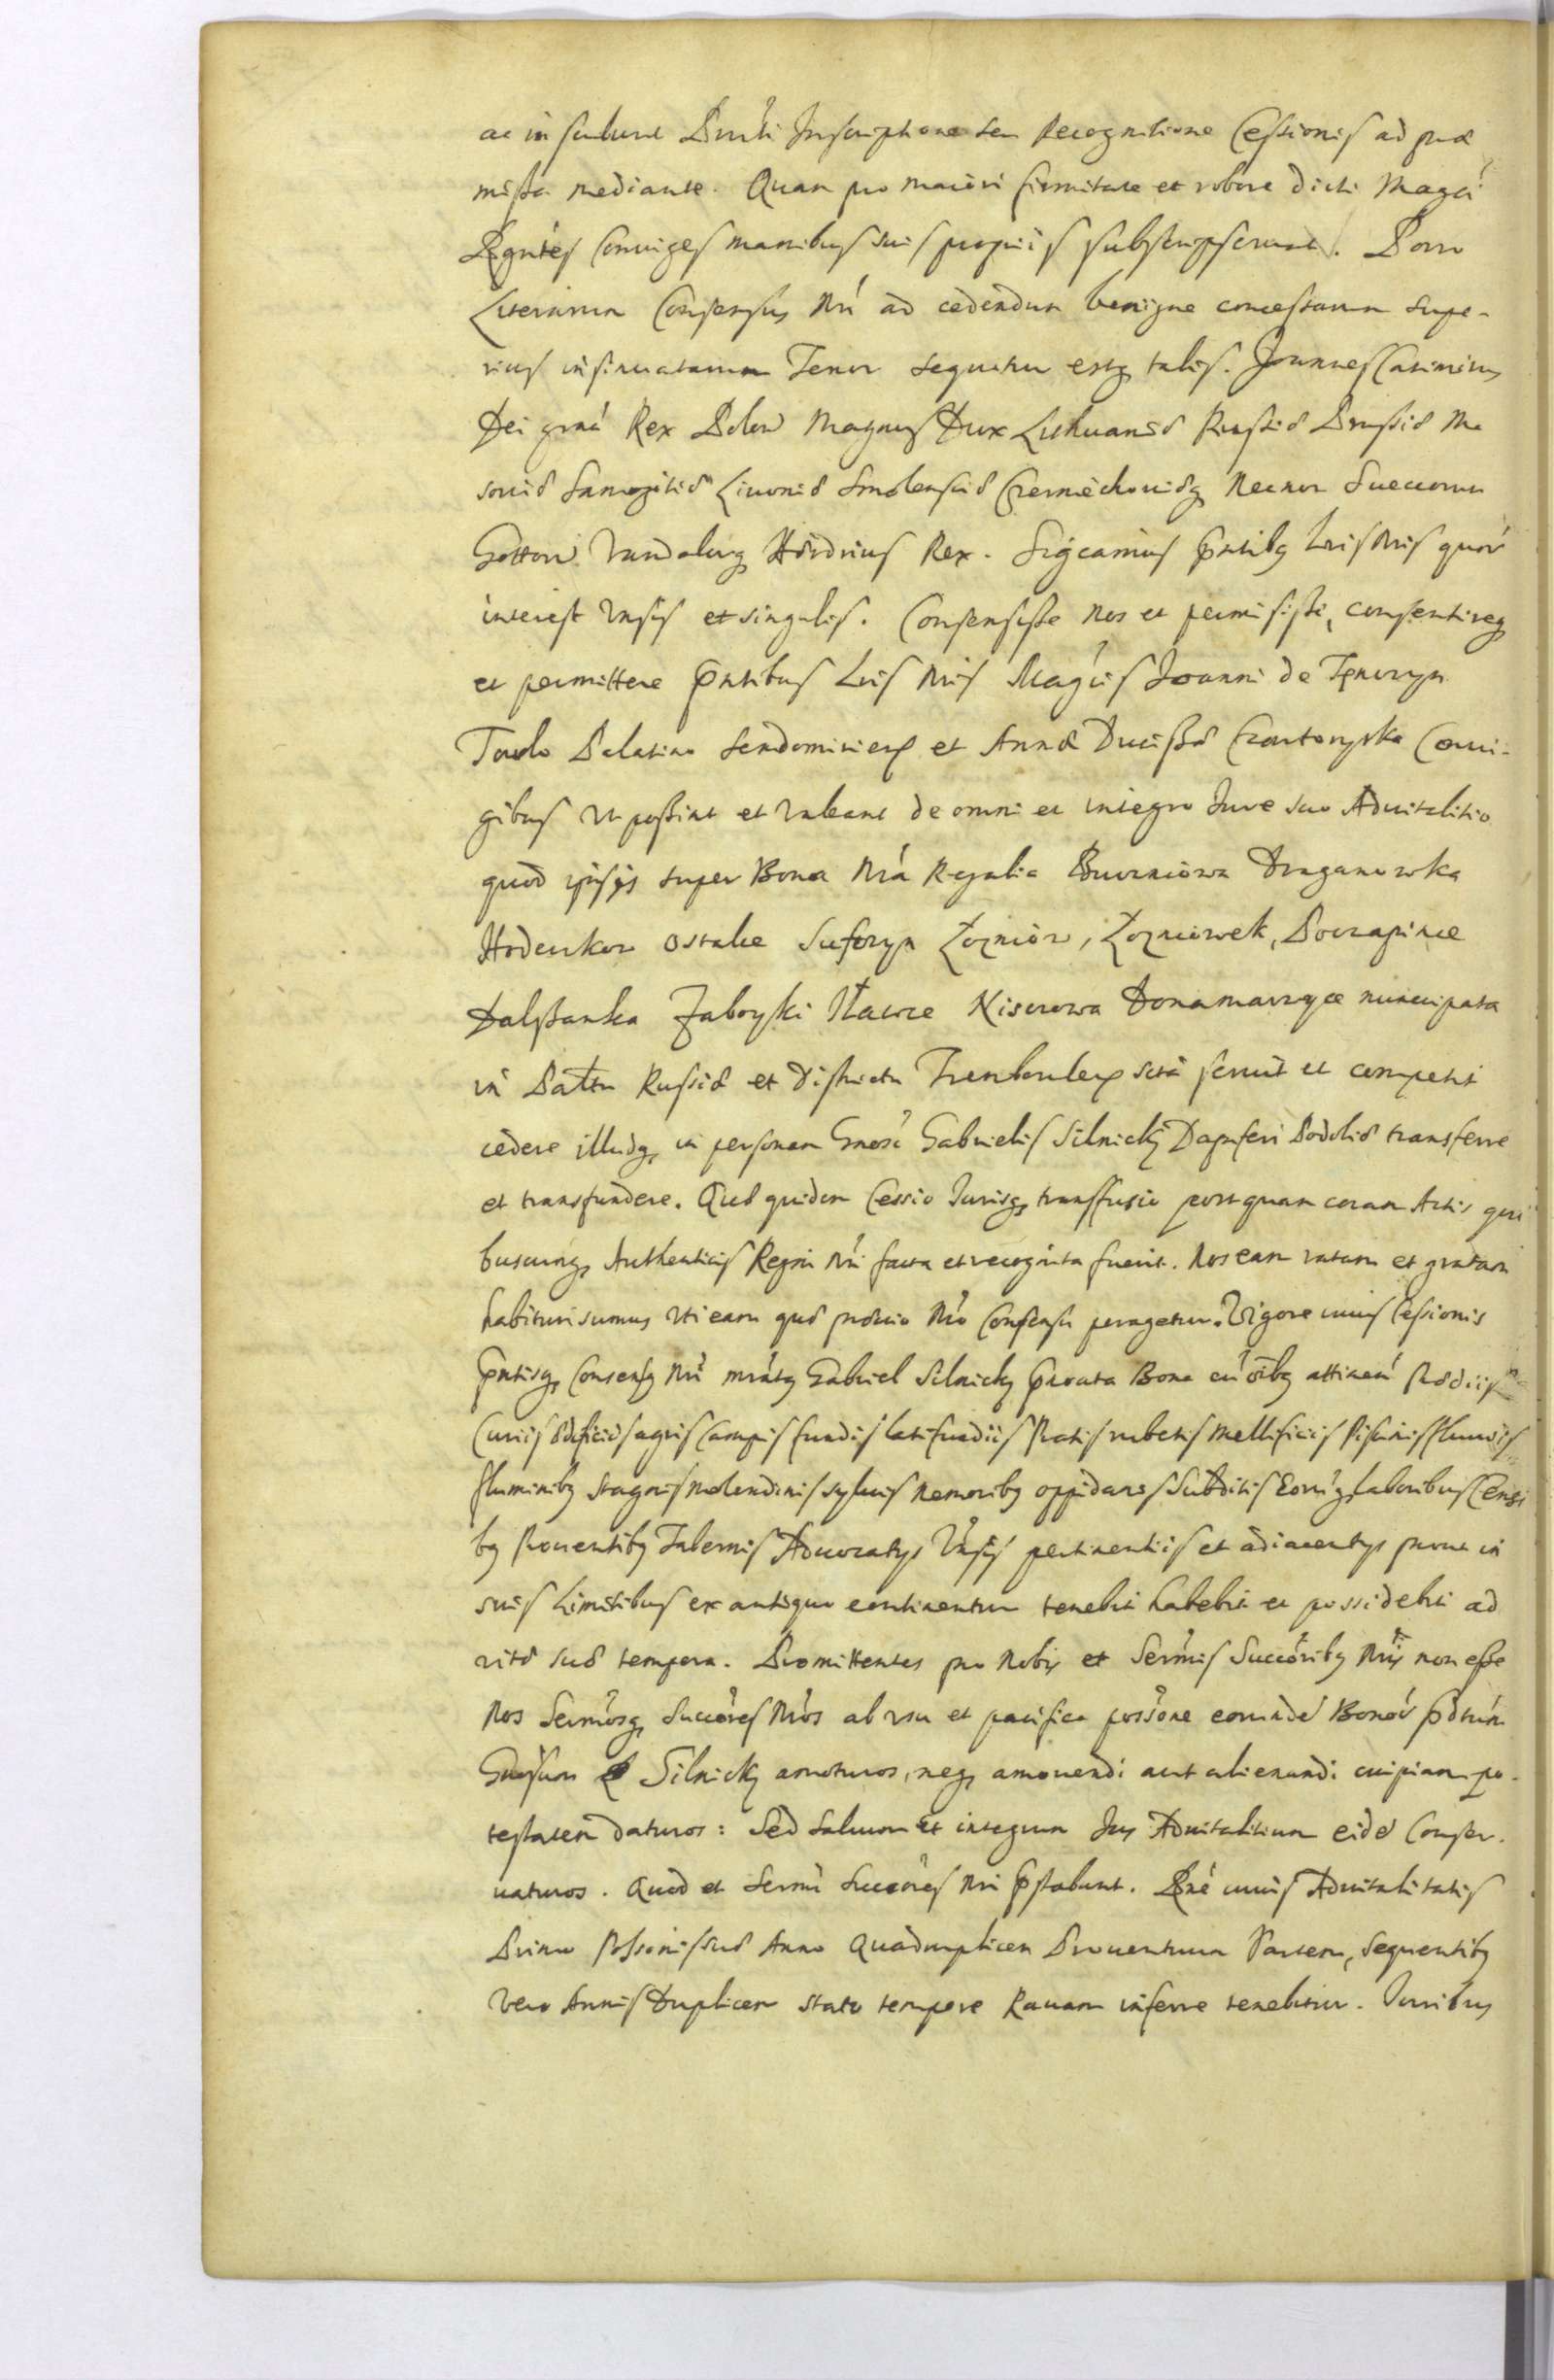 ac in solvent Pnti Inscriptione seu Recognitione Cessionis ad præ
missa mediante. Quam pro maiori firmitate et robore dicti Magci
Rgntes Coniuges manibus suis proprijs subscripserunt. Porro
Literarum Consensus Nri ad cedendum benigne concessarum supe-
rius insinuatarum Tenor sequitur estq talis. Joannes Casimirus
Dei gratia Rex Polon Magnus Dux Lithuaniæ Russiæ Prussiæ Ma
soviæ Samogitiæ Livoniæ Smolensciæ Czerniechoviæq Necnon Suecorum
Gottorum Vandalorumq Hæredrius Rex. Sigcamus Pntibq Lris Nris quor
interest Vnsis et singulis. Consensisse nos et permisisse, consentireq
et permittere Pntibus Lris Nris Magcis Joanni de Tęnczyn
Palatino Sendomirien et Annæ Ducissæ Czartoryska Coniu-
gibus Vt possint et valeant de omni et integro Jure suo Aduitalitio
quod ipsis super Bona Nra Regalia Draganowka
Ostalce Suszczyn Łozniow, Łozniowek, Poczapince
Zaboyki Iławcze Nisczowa Domamorycze nuncupata
in Palttu Russiæ et districtu Trembovlen sita servit et competit
cedere illudq in personam Gnosi Gabrielis Silnicky Dapiferi Podoliæ transferre
et transfundere. Quæ quidem Cessio Jurisq transfusio postquam coram Actis qui
buscunq Authenticis Regni Nri facta et recognita fuerit. Nos eam ratam et gratam
habituri sumus Vti eam quæ prævio Nro Consensu peragetur. Vigore cuius Cessionis
Pntisq Consensq Nri mratq Gabriel Silnicky Pnoata Bona cu oibq attinen Prædiis
Curiis ædificiis agris Campis fundis latifundiis Pratis rubetis Mellificiis Piscinis fluviis
fluminibq Stagnis Molendinis sylvis Nemoribq oppidanis Subditis Eorumq laboribus Censi
bq Proventibq Tabernis Advocatys Vnsis pertinentiis et adiacentys prout in
suis Limitibus ex antiquo continentur tenebit habebit et possidebit ad
vitæ suæ tempora. Promittentes pro Nobis et Sermis Succoribq Nris non esse
Nos Sermosq Succores Nros ab vsu et pacifica possone eorunde Bonor pdtum
Gnosum Silnicky amoturos, neq amovendi aut alienandi cuipiam po-
testatem daturos: Sed salvum et integrum Jus Advitalitium eide Conser-
vaturos. Quod et Sermi Succores Nri Pstabunt. Rne cuius Advitalitatis
Primo Possonis suæ Anno Quadruplicem Proventuum Partem, Sequentibq
Vero Annis Duplicem stato tempore Ravam inferre tenebitur. Juribus